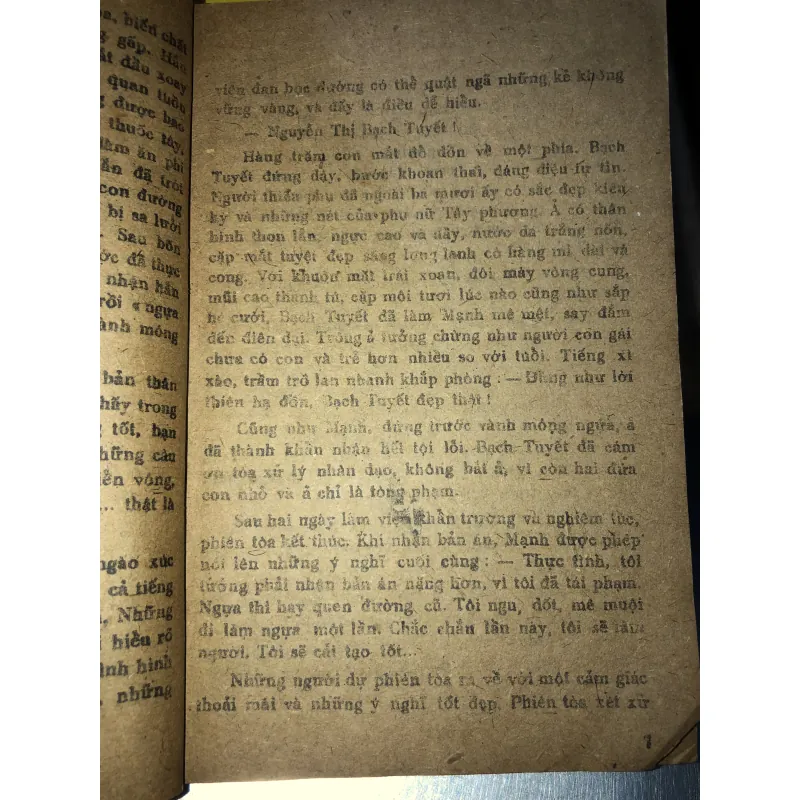 oa, biến chất
g gấp. Hắn
ắt đầu xoay
quan tuồn
g được bao
thuốc tây,
làm ăn phi
ắn đã trót
con đường
bị sa lưới
Sau bốn
ớc đã thực
nhận hắn
rồi « ngựa
ành móng
bản thân
hấy trong
g tốt, bạn
hững câu
ền vông,
... thật là
ngào xúc
cả tiếng
Những
hiểu rõ
ình hình
những
viên đạn bọc đường có thể quật ngã những kẻ không
vững vàng, và đấy là điều dễ hiểu.
— Nguyễn Thị Bạch Tuyết !
Hàng trăm con mắt đổ dồn về một phía. Bạch
Tuyết đứng dậy, bước khoan thai, dáng điệu tự tin.
Người thiếu phụ đã ngoài ba mươi ấy có sắc đẹp kiều
kỳ và những nét của phụ nữ Tây phương. Ả có thân
hình thon lẳn, ngực cao và đầy, nước da trắng nõn,
cặp mắt tuyệt đẹp sáng long lanh có hàng mi dài và
cong. Với khuôn mặt trái xoan, đôi mày vòng cung,
mũi cao thanh tú, cặp môi tươi lúc nào cũng như sắp
hé cười, Bạch Tuyết đã làm Mạnh mê mệt, say đắm
đến điên dại. Trông ả tưởng chừng như người con gái
chưa có con và trẻ hơn nhiều so với tuổi. Tiếng xì
xào, trầm trồ lan nhanh khắp phòng : — Đúng như lời
thiên hạ đồn, Bạch Tuyết đẹp thật !
Cũng như Mạnh, đứng trước vành móng ngựa, ả
đã thành khẩn nhận hết tội lỗi. Bạch Tuyết đã cám
ơn tòa xử lý nhân đạo, không bắt ả, vì còn hai đứa
con nhỏ và ả chỉ là tòng phạm.
Sau hai ngày làm việc khẩn trương và nghiêm túc,
phiên tòa kết thúc. Khi nhận bản án, Mạnh được phép
nói lên những ý nghĩ cuối cùng : — Thực tình, tôi
tưởng phải nhận bản án nặng hơn, vì tôi đã tái phạm.
Ngựa thì hay quen đường cũ. Tôi ngu, dốt, mê muội
đi làm ngựa một lần. Chắc chắn lần này, tôi sẽ làm
người. Tôi sẽ cải tạo tốt...
Những người dự phiên tòa ra về với một cảm giác
thoải mái và những ý nghĩ tốt đẹp. Phiên tòa xét xử
7